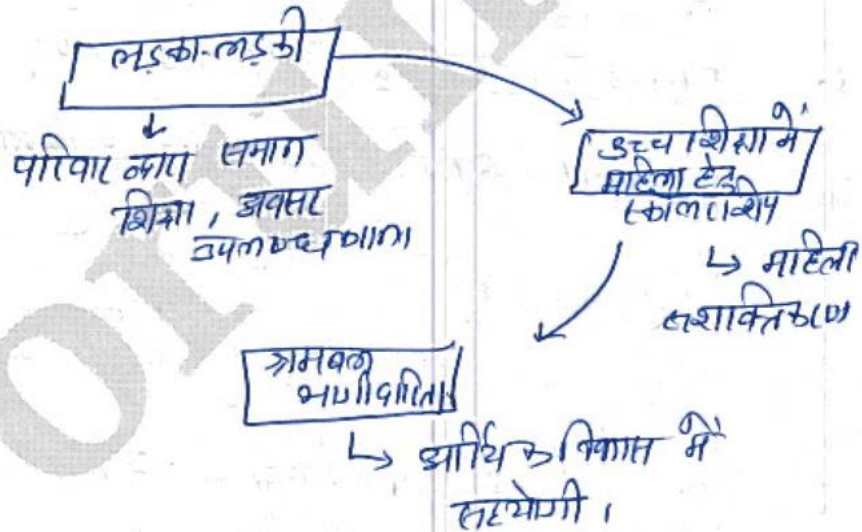 लड़का-लड़की
परिवार द्वारा समान
शिक्षा, अवसर
उपलब्ध
उच्च शिक्षा में
महिला हेतु
स्कॉलरशिप
↳ महिला
सशक्तिकरण
श्रमबल
भागीदारिता
↳ आर्थिक विकास में
सहयोगी।